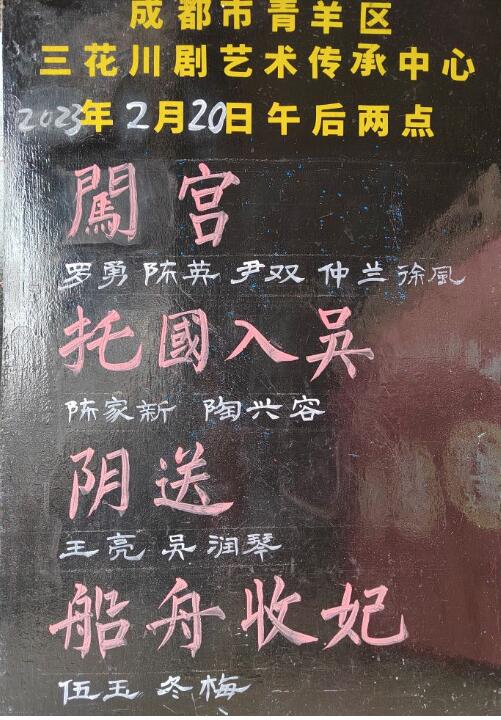 成都市青羊区
三花川剧艺术传承中心
2023年2月20日午后两点
闖宫
罗勇 陈英 尹双 仲兰 徐风
托國入吴
陈家新 陶兴容
阴送
王亮 吴润琴
船舟收妃
伍玉 冬梅